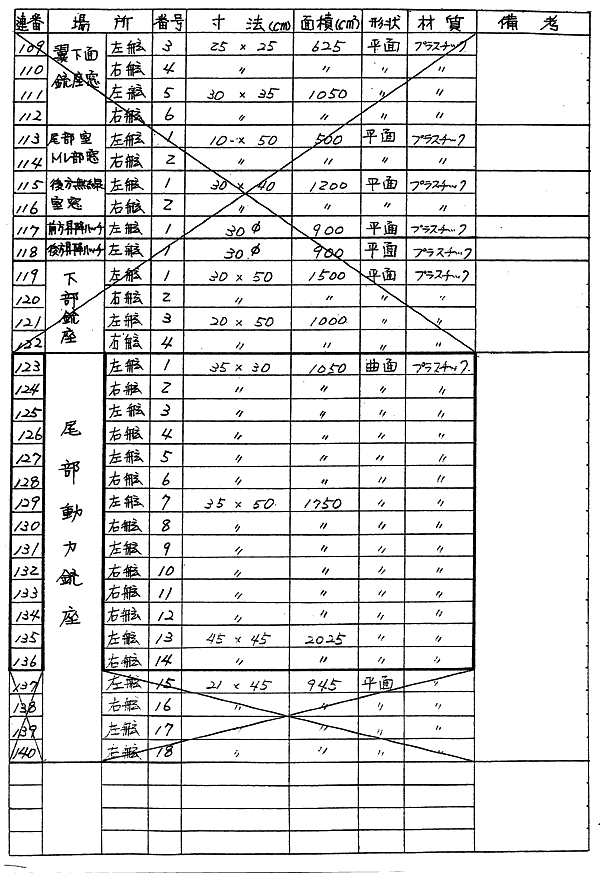 連番 場所 番号 寸法(cm) 面積(cm²) 形状 材質 備考
109 翼下面 左舷 3 25 × 25 625 平面 プラスチック
110 銃座窓 右舷 4 〃 〃 〃 〃
111 左舷 5 30 × 35 1050 〃 〃
112 右舷 6 〃 〃 〃 〃
113 尾部室 左舷 1 10 × 50 500 平面 プラスチック
114 部窓 右舷 2 〃 〃 〃 〃
115 後方無線 左舷 1 30 × 40 1200 平面 プラスチック
116 室窓 右舷 2 〃 〃 〃 〃
117 前方昇降ハッチ 左舷 1 30 φ 900 平面 プラスチック
118 後方昇降ハッチ 左舷 1 30 φ 900 平面 プラスチック
119 下部銃座 左舷 1 30 × 50 1500 平面 プラスチック
120 右舷 2 〃 〃 〃 〃
121 左舷 3 20 × 50 1000 〃 〃
132 右舷 4 〃 〃 〃 〃
123 尾部動力銃座 左舷 1 35 × 30 1050 曲面 プラスチック
124 右舷 2 〃 〃 〃 〃
125 左舷 3 〃 〃 〃 〃
126 右舷 4 〃 〃 〃 〃
127 左舷 5 〃 〃 〃 〃
128 右舷 6 〃 〃 〃 〃
129 左舷 7 35 × 50 1750 〃 〃
130 右舷 8 〃 〃 〃 〃
131 左舷 9 〃 〃 〃 〃
132 右舷 10 〃 〃 〃 〃
133 右舷 11 〃 〃 〃 〃
134 右舷 12 〃 〃 〃 〃
135 左舷 13 45 × 45 2025 〃 〃
136 右舷 14 〃 〃 〃 〃
137 左舷 15 21 × 45 945 平面 〃
138 右舷 16 〃 〃 〃 〃
139 左舷 17 〃 〃 〃 〃
140 右舷 18 〃 〃 〃 〃